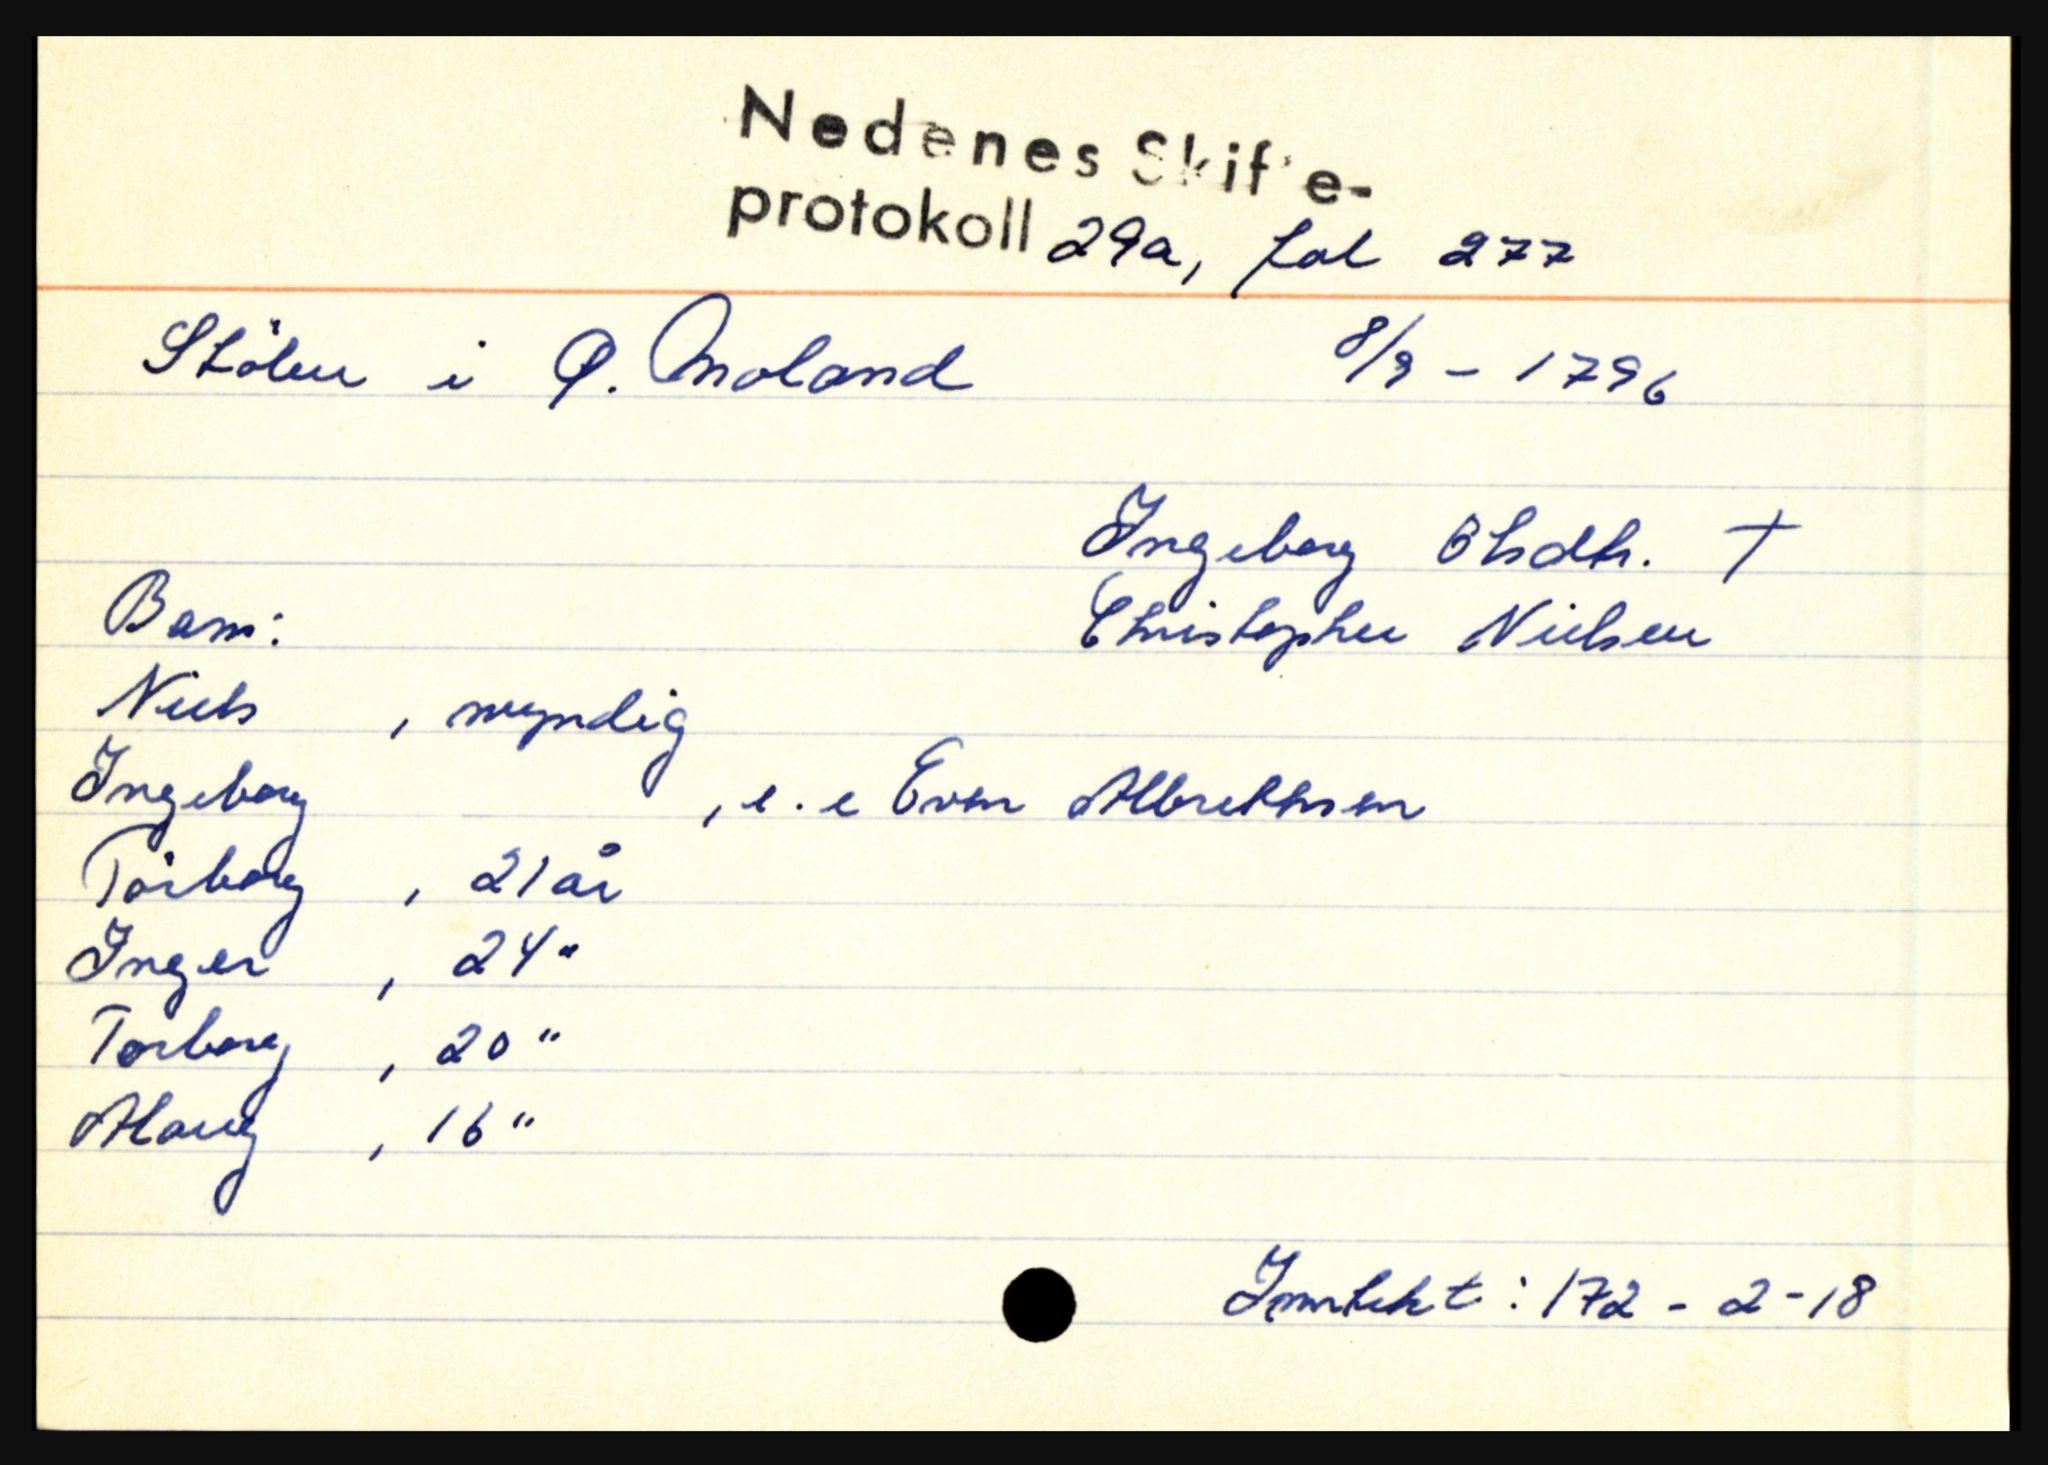 Nedenes Skifte-
protokoll 29a, fol 277
Stölen i Ø. Moland 8/9 - 1796
Ingeborg Olsdtr. †
Barn: Christopher Nielsen
Niels , myndig
Ingeborg , e. e Even Albrethsen
Torborg , 21 år
Inger , 24 "
Torborg , 20 "
, 16 "
Inntekt : 172 - 2 - 18